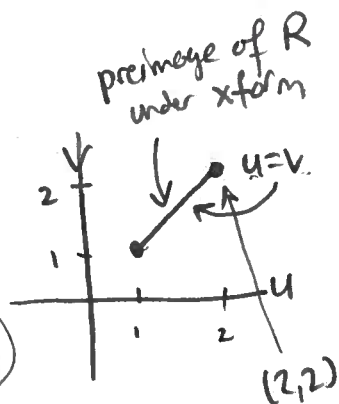 preimage of R
under xform
v
2
u=v
1
u
1
2
(2,2)